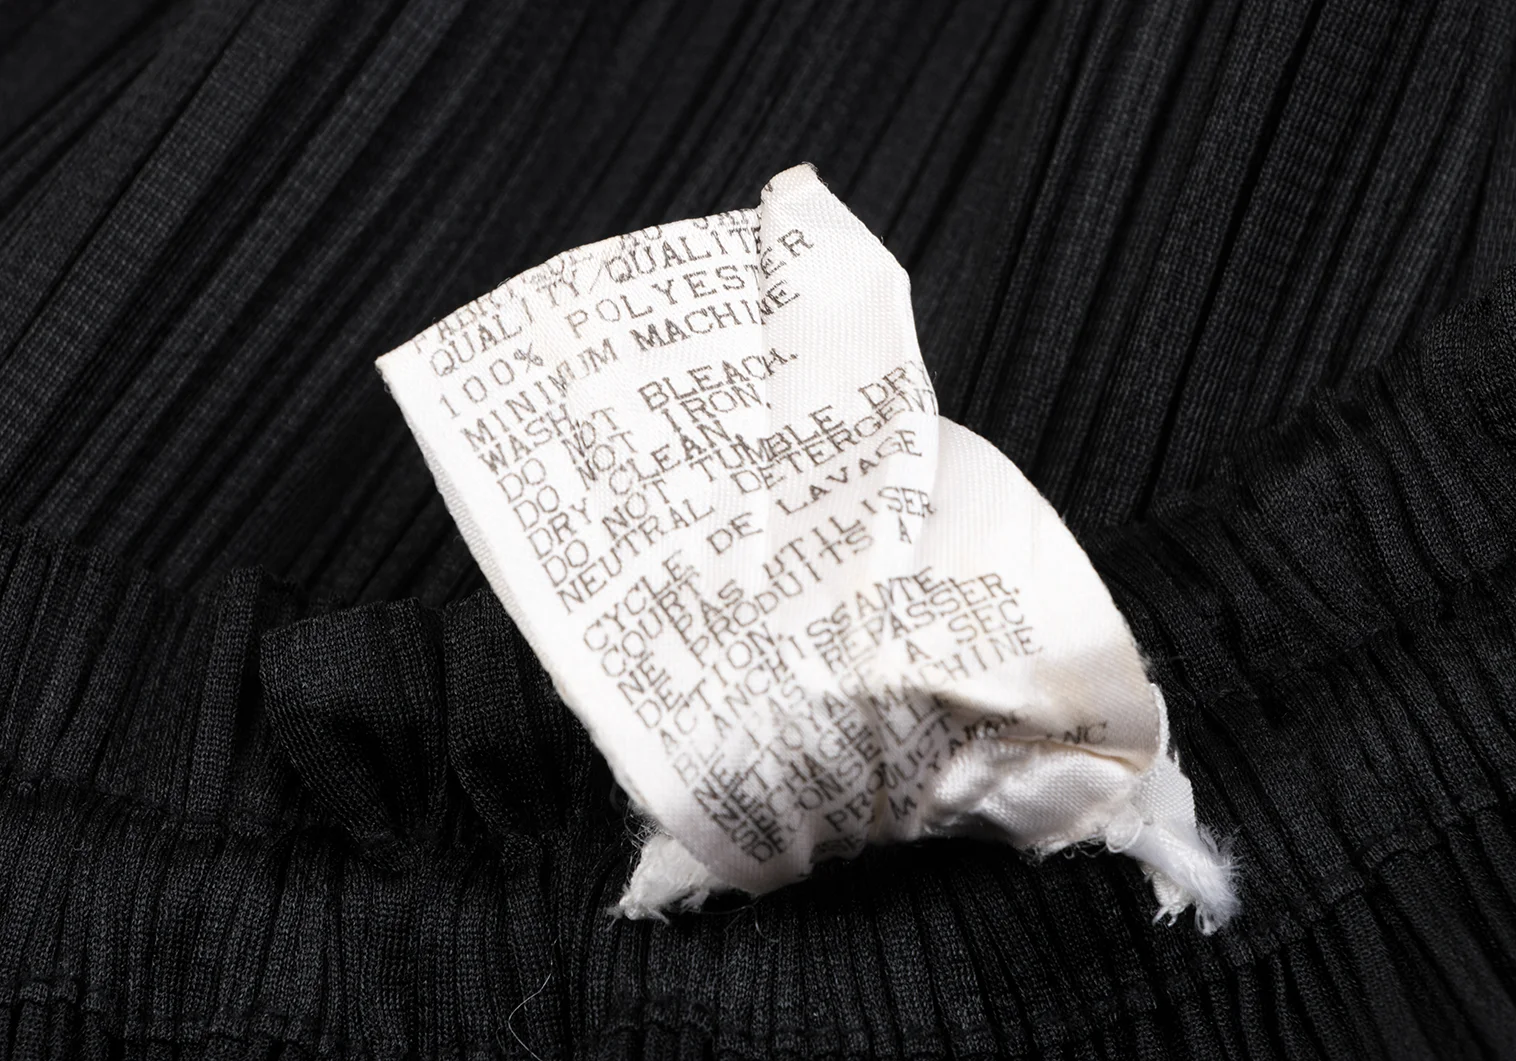 QUALITY/QUALITE
100% POLYESTER
MINIMUM MACHINE
WASH.
DO NOT BLEACH.
DO NOT IRON.
DRY CLEAN.
DO NOT TUMBLE DRY
NEUTRAL DETERGENT
CYCLE DE LAVAGE
COURT
NE PAS UTILISER
DE PRODUITS A
ACTION
BLANCHISSANTE
NE PAS REPASSER.
NETTOYAGE A SEC
MACHINE